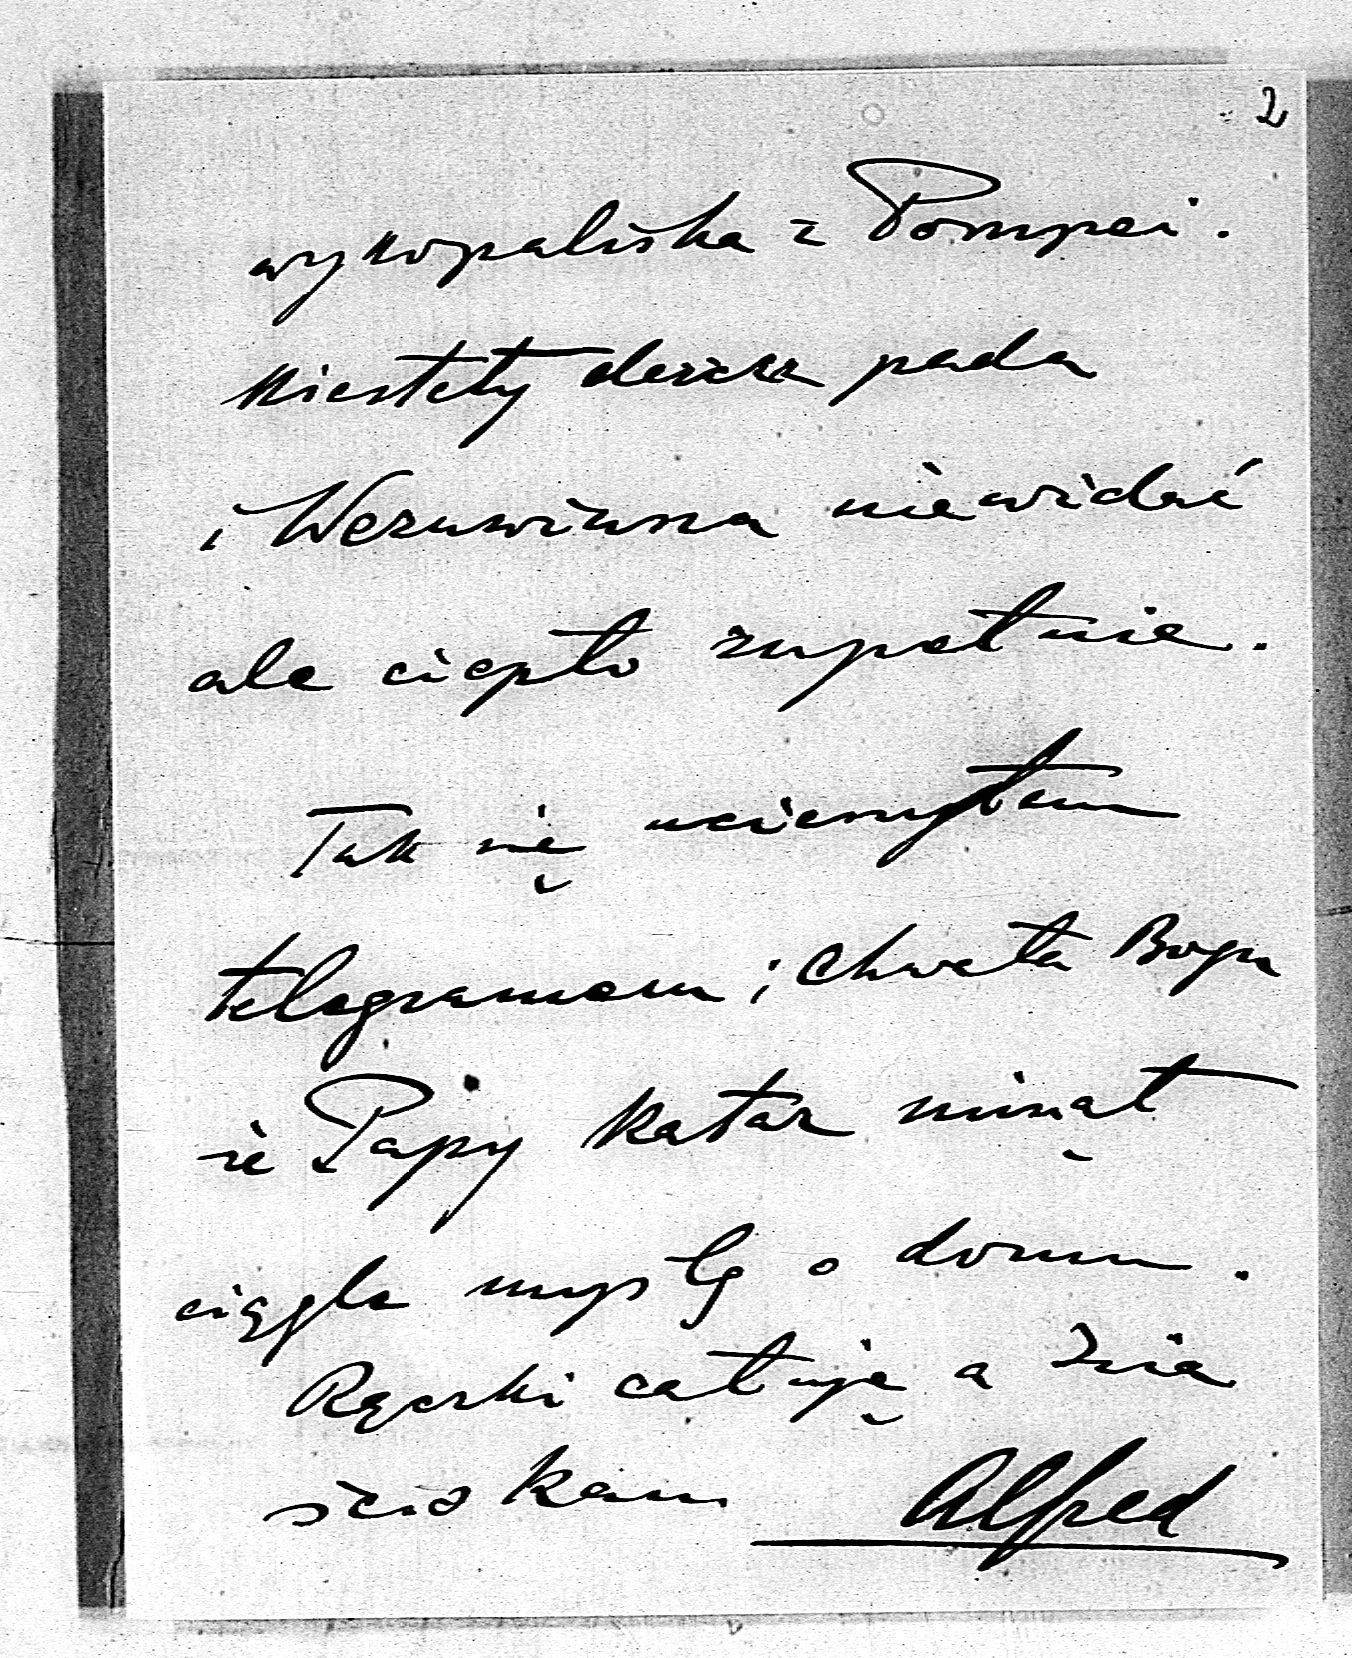 2
wykopaliska z Pompei.
Niestety deszcz pada
i Wezuwiusza niewidać
ale ciepło zupełnie.
Tak się ucieszyłem
telegramem i chwała Bogu
że Papy katar minął
ciągle myślę o domu.
Rączki całuję a Znia
ściskam Alfred